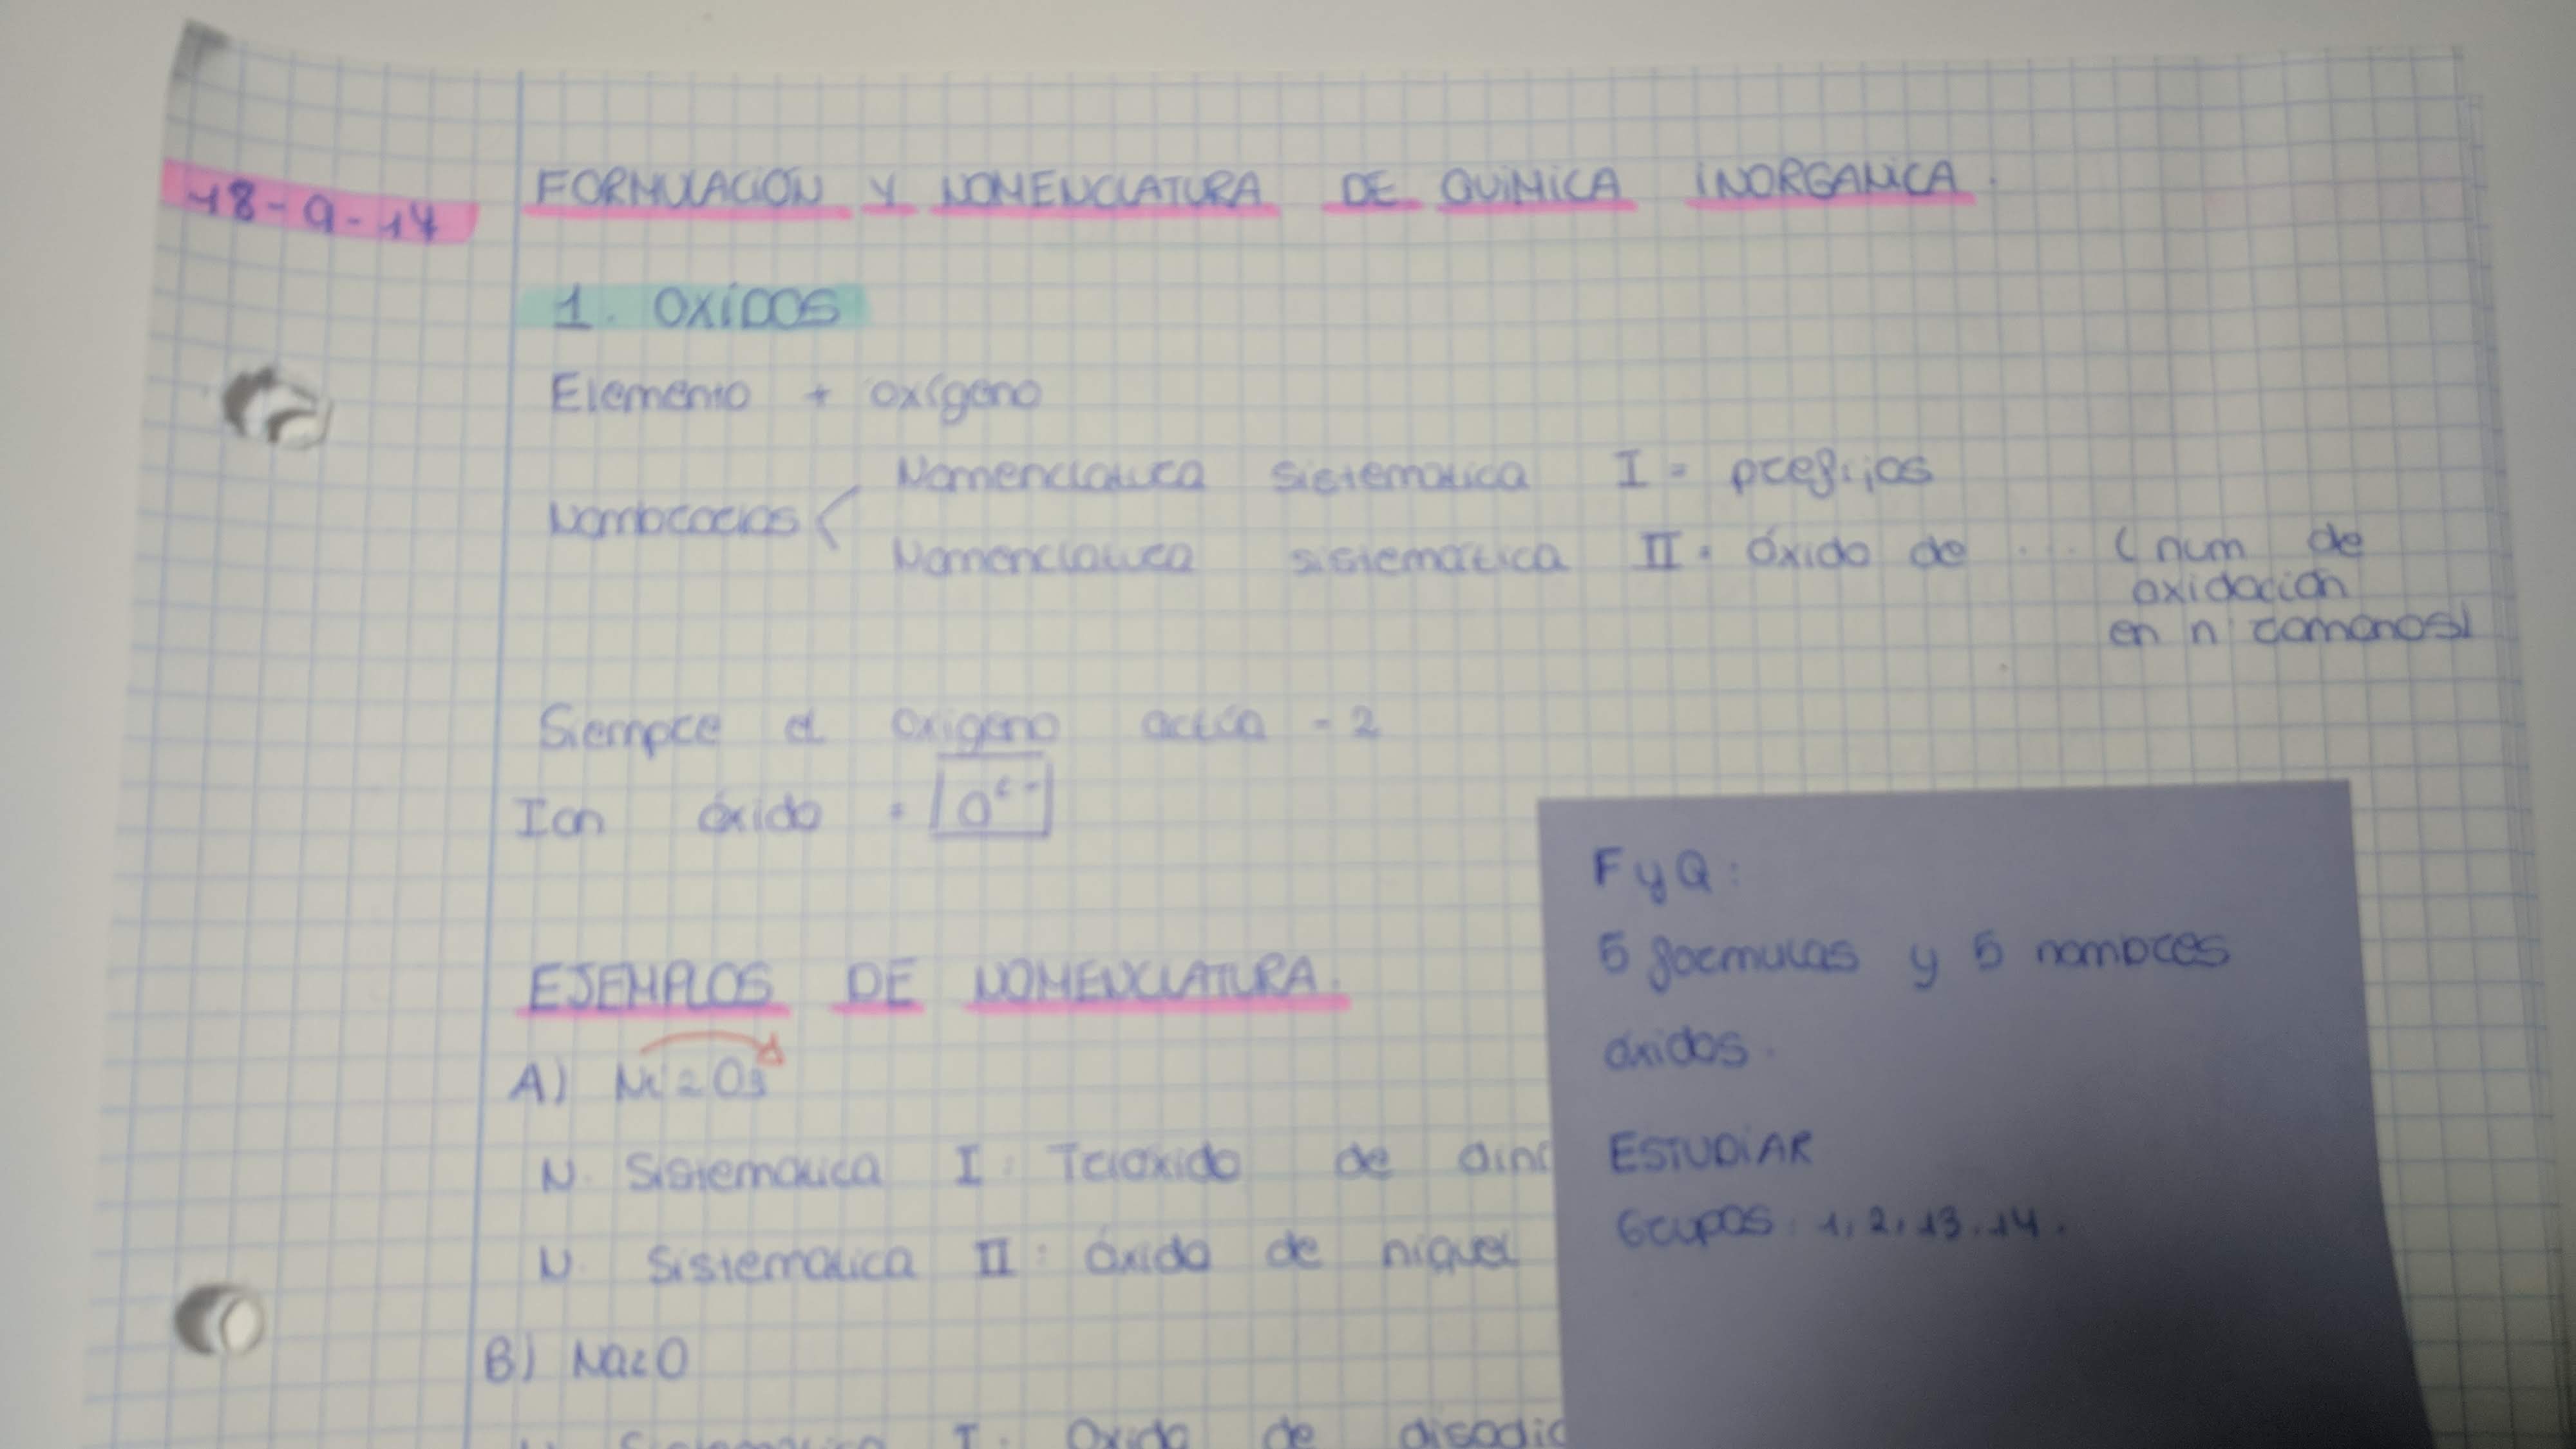 18-9-17
FORMULACIÓN Y NOMENCLATURA DE QUÍMICA INORGANICA.
1. OXÍDOS
Elemento + oxígeno
Nombrarlos
Nomenclatura sistematica I = prefijos
Nomenclatura sistematica II = óxido de ... (num de
oxidación
en nº romanos)
Siempre el oxigeno actúa -2
Ion óxido = O²⁻
EJEMPLOS DE NOMENCLATURA.
A) Ni2O3
N. Sistematica I: Trióxido de diní
N. Sistematica II: óxido de niquel
B) Na2O
N. Sistematica I: Oxido de disodio
FyQ:
5 formulas y 5 nombres
óxidos.
ESTUDIAR
Grupos: 1, 2, 13, 14.